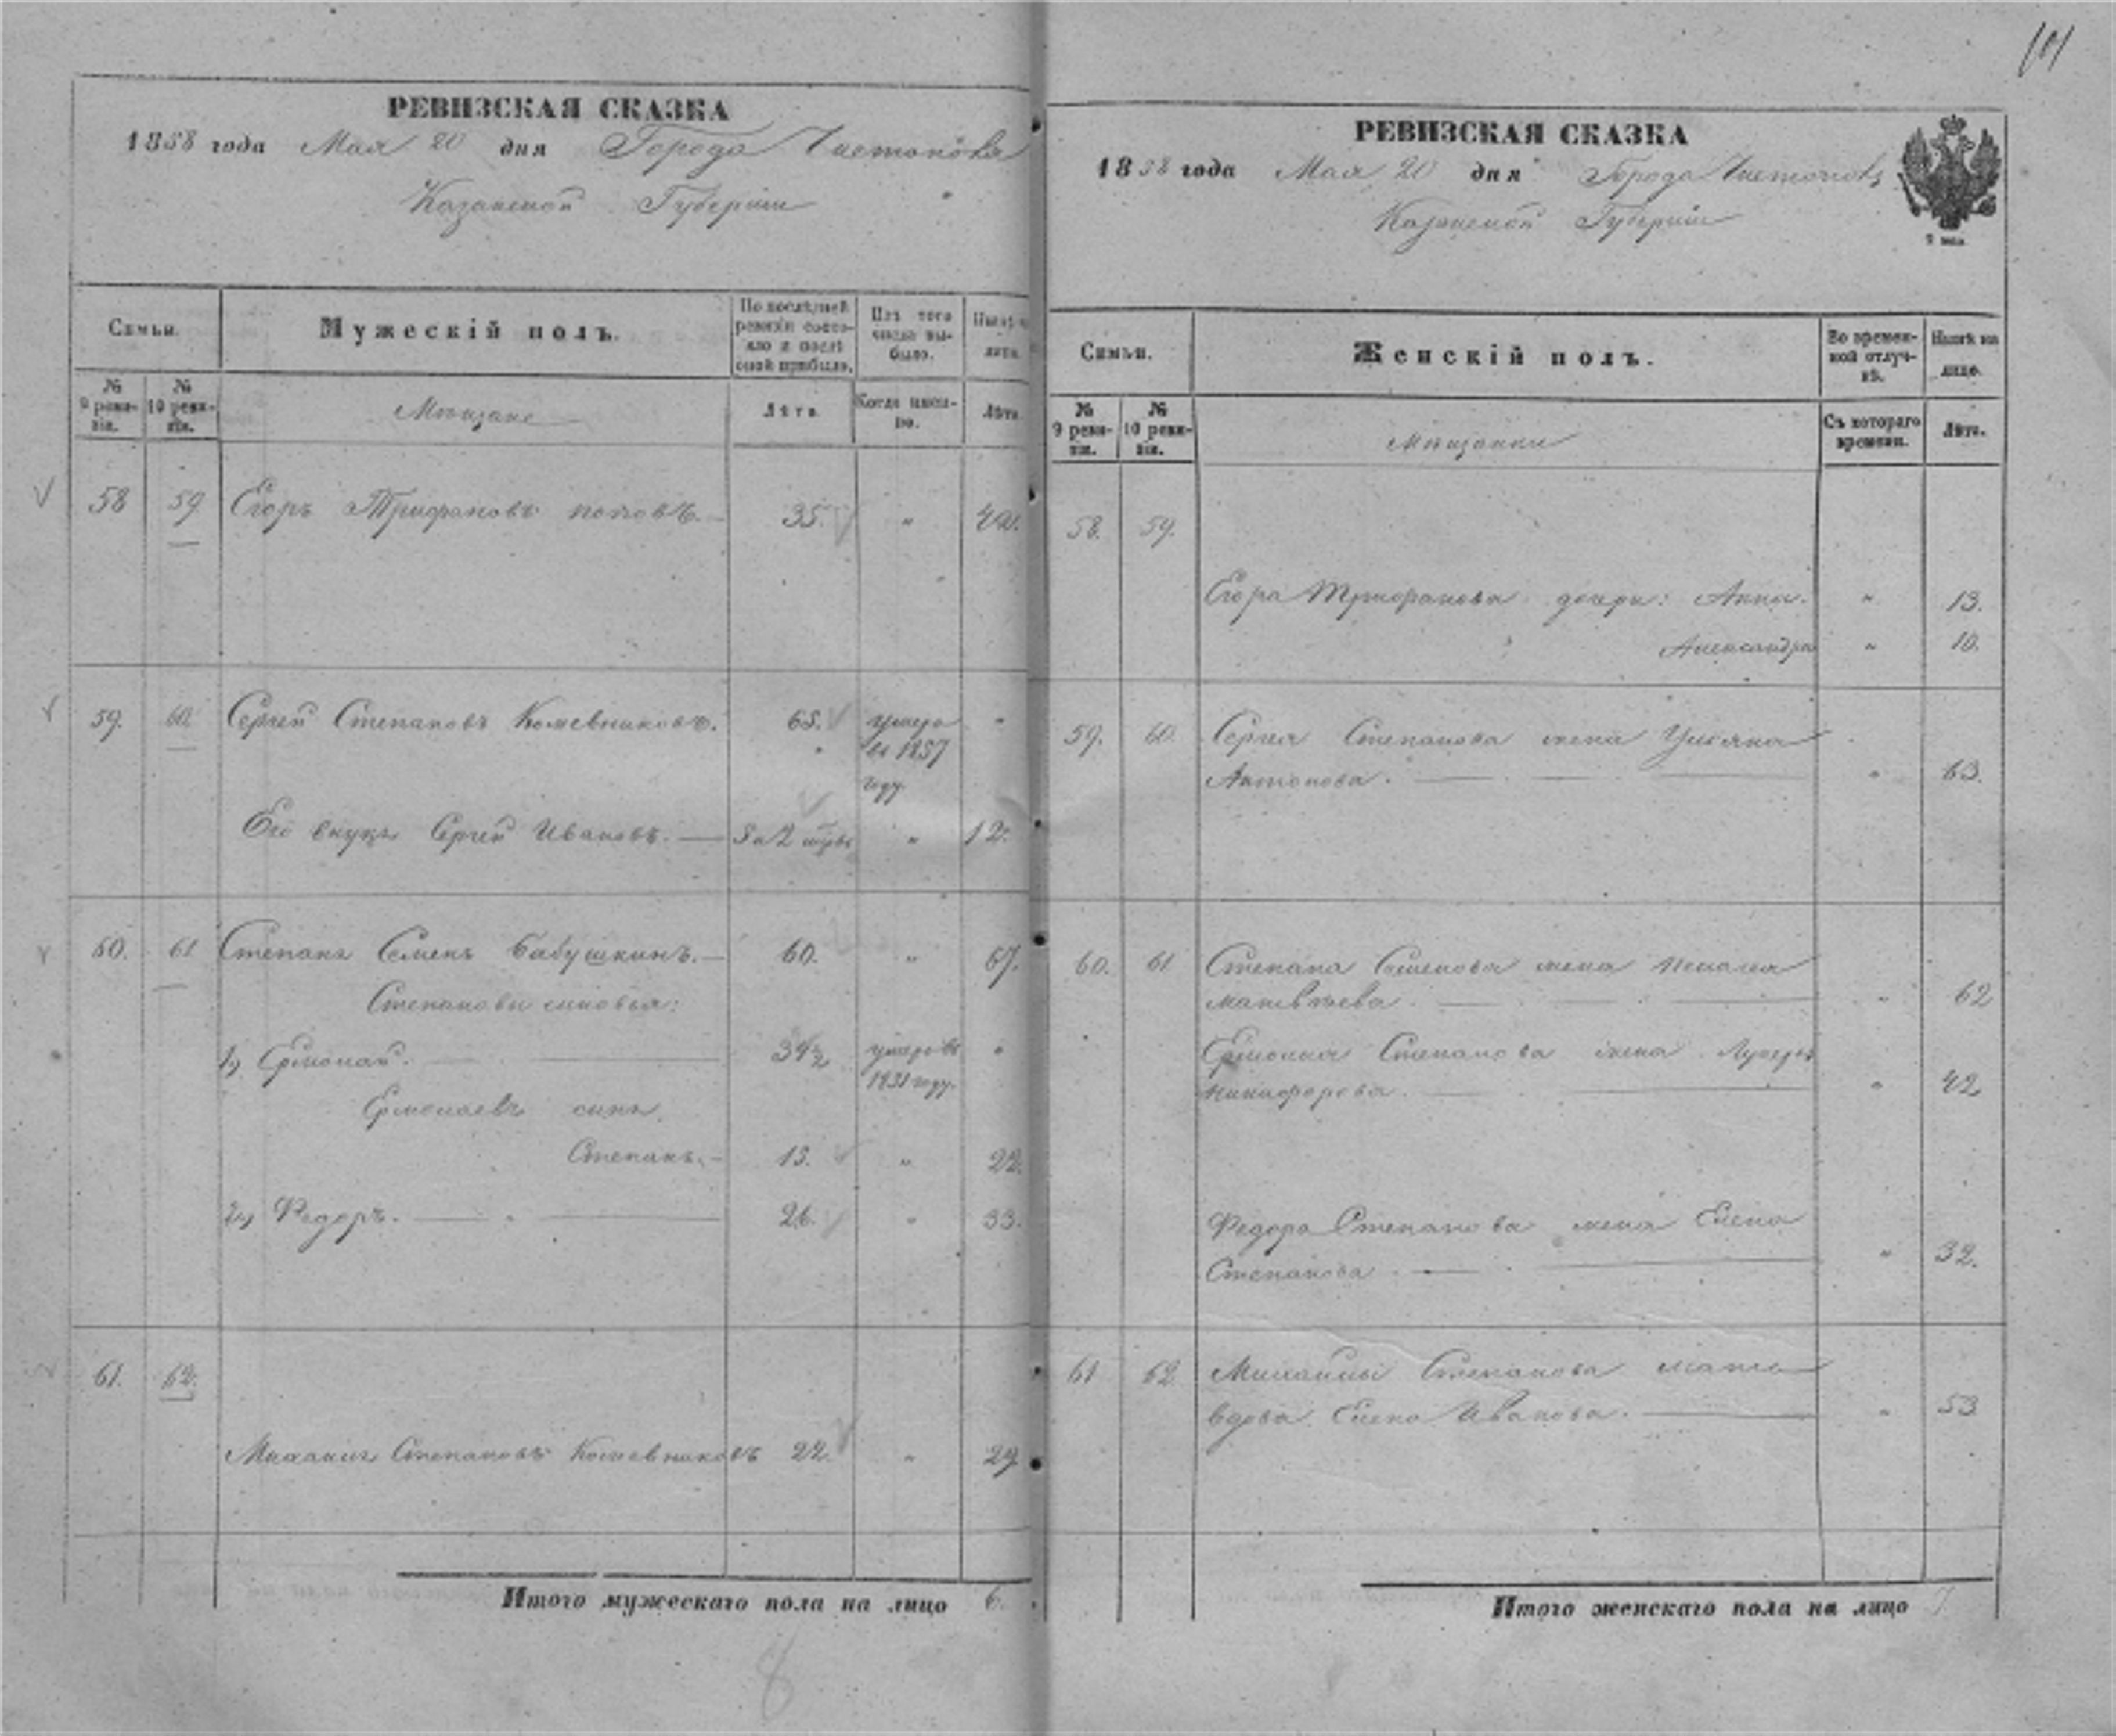 101
РЕВИЗСКАЯ СКАЗКА
1858 года Мая 20 дня Города Чистополя
Казанской Губернии
Семьи.
Мужескій полъ.
По послѣдней ревизіи состояло и послѣ оной прибыло.
Изъ того числа выбыло.
Нынѣ на лицо.
№ 9 ревизіи.
№ 10 ревизіи.
Мѣщане
Лѣта.
Когда именно.
Лѣта.
58 59 Егоръ Трифоновъ Поповъ. 35. " 42.
59. 60 Сергей Степановъ Кожевниковъ. 65. умеръ "
въ 1857
году.
Его внукъ Сергей Ивановъ. " 12.
60. 61 Степанъ Семенъ Бабушкинъ. 60. " 67.
Степановы сыновья:
1) Ермолай. умеръ въ "
1851 году.
Ермолаевъ сынъ
Степанъ. " 22.
2) Федоръ. 26. " 33.
61. 62.
Михаилъ Степановъ Кожевниковъ 22. " 29
Итого мужескаго пола на лицо 6.
8
РЕВИЗСКАЯ СКАЗКА
1858 года Мая 20 дня Города Чистополя
Казанской Губерніи
Семьи.
Женскій полъ.
Во временной отлучкѣ.
Нынѣ на лицо.
№ 9 ревизіи.
№ 10 ревизіи.
Мѣщанки
Съ котораго времени.
Лѣта.
58. 59.
Егора Трифонова дочери: Анна. " 13.
Александра " 10.
59. 60. Сергея Степанова жена Ульяна
Антонова. " 63.
60. 61 Степана Семенова жена Пелагея
Матвѣева. " 62
Ермолая Степанова жена Лукерья
Никифорова. " 42
Федора Степанова жена Елена
Степанова " 32.
61 62 Михайлы Степанова мать
вдова Елена Иванова. " 53
Итого женскаго пола на лицо 7